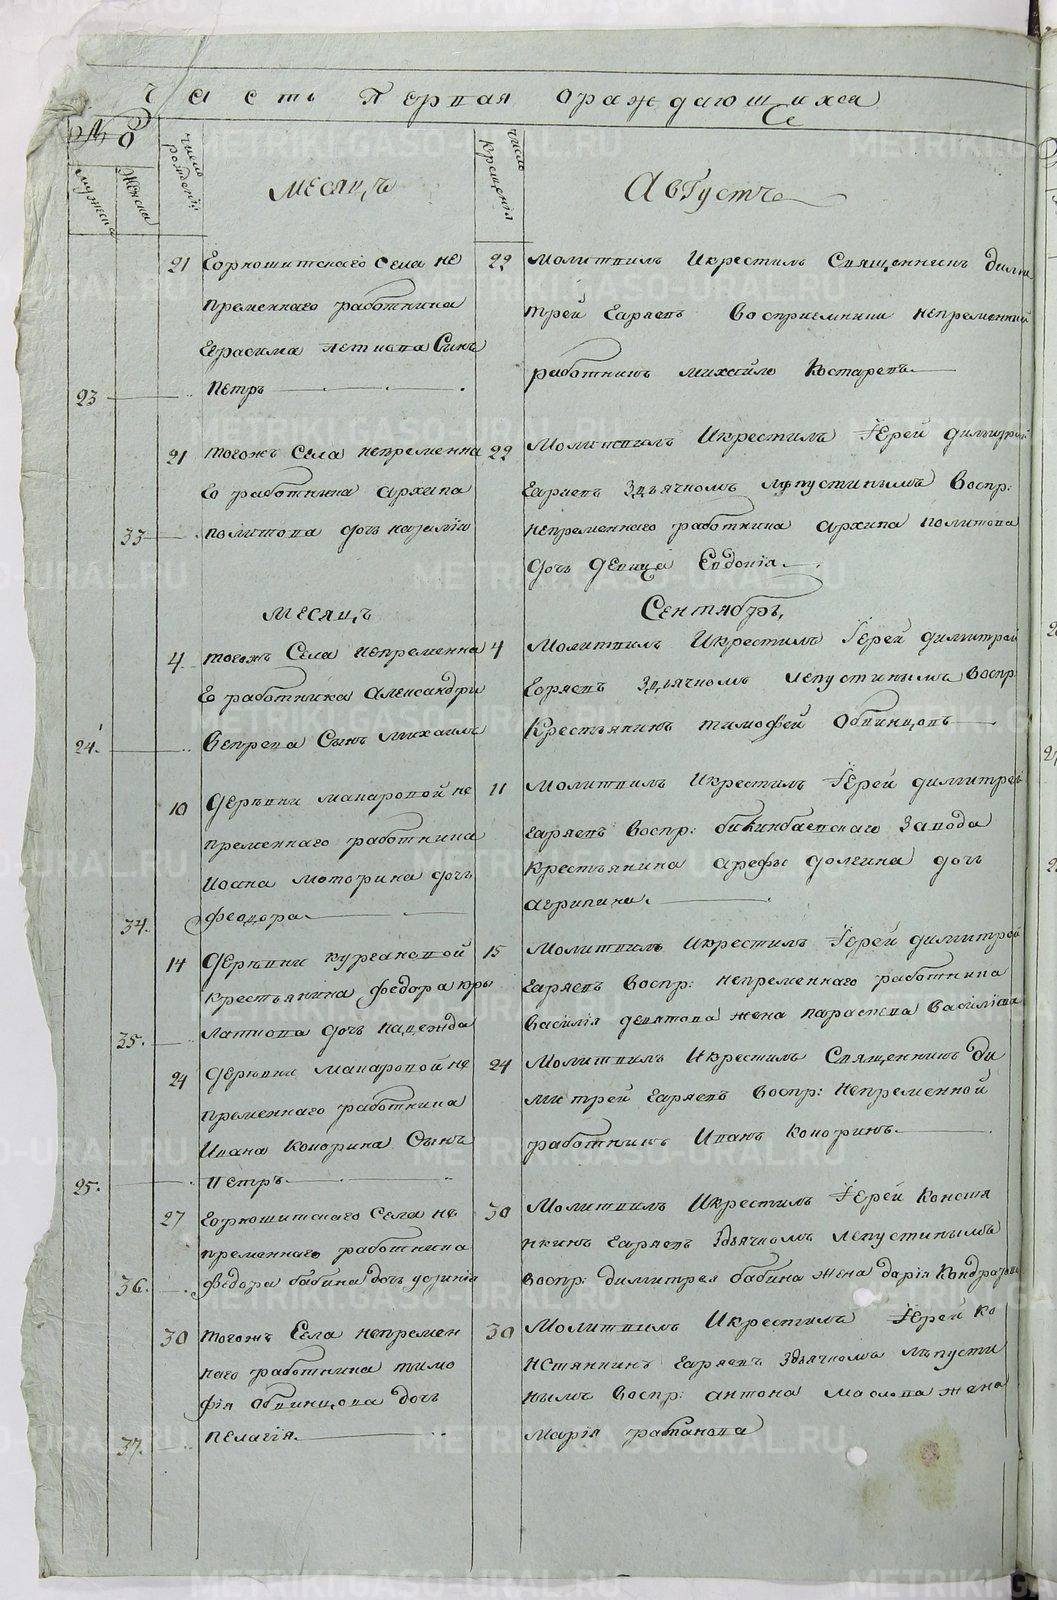 Часть Первая ораждающихся
№
Мужеска
Женска
число рожденій
Месяцъ
число крещенія
Августъ
21 Горношитскаго Села не
пременнаго работника
Герасима Летнова Сынъ
23 Петръ
22 Молитвилъ Икрестилъ Священникъ Дими
трей Гаряевъ Восприемники непременный
работникъ Михайло Костаревъ
21 тогожъ Села непременна
го работника Архипа
33 политова дочь
22 Молитвилъ Икрестилъ Іерей димитрей
Гаряевъ Здьячкомъ Лепустинымъ Воспр:
непременнаго работника Архипа политова
дочь девица Евдокія
Месяцъ
Сентябрь
4 тогожъ Села непременна
го работника Александры
24. Вепрева Сынъ Михаилъ
4 Молитвилъ Икрестилъ Іерей димитрей
Гаряевъ Здьячкомъ Лепустинымъ Воспр:
Крестьянинъ тимофей Обвинцовъ
10 Деревни Макаровой не
пременнаго работника
Иоана Моторина дочь
34. феодора
11 Молитвилъ Икрестилъ Іерей димитрей
Гаряевъ Воспр: билинбаевскаго Завода
крестьянина Арефы долгина дочь
Агрипина
14 Деревни кургановой
крестьянина федора кры
35. латкова дочь надежда
15 Молитвилъ Икрестилъ Іерей димитрей
Гаряевъ Воспр: непременнаго работника
Василія девятова жена параскева Васіліева
24 Деревни Макаровой не
пременнаго работника
Ивана Конорина Сынъ
25. петръ
24 Молитвилъ Икрестилъ Священникъ Ди
митрей Гаряевъ Воспр: Непременной
работникъ Иванъ Коноринъ
27 Горношитскаго Села не
пременнаго работника
36. федора бабина дочь устинія
30 Молитвилъ Икрестилъ Іерей Констя
нкинъ Гаряевъ Здьячкомъ Лепустинымъ
воспр: димитрея бабина жена дарія Кондратова
30 тогожъ Села непремен
наго работника тимо
фія Обвинцова дочь
37. пелагія
30 Молитвилъ Икрестилъ Іерей Ко
нстянкинъ Гаряевъ Здьячкомъ Лепусти
нымъ воспр: антона Маслова жена
Марія
METRIKI.GASO-URAL.RU